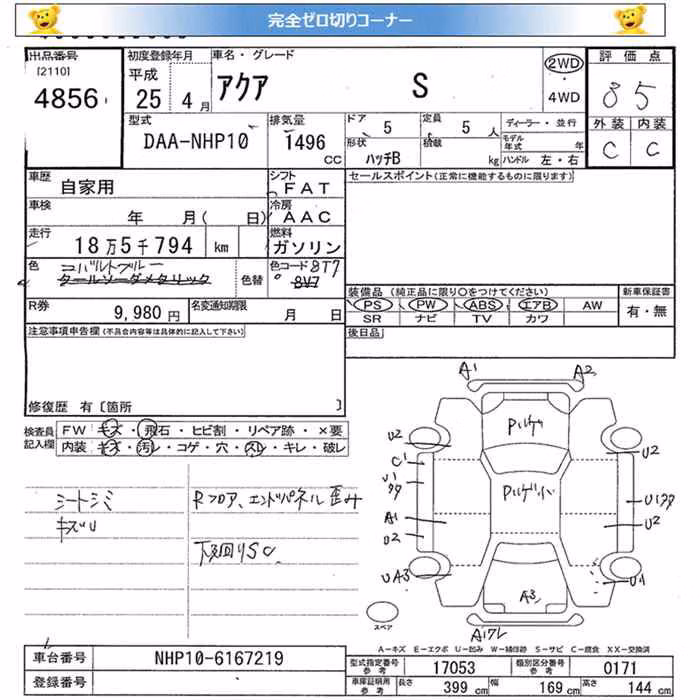 完全ゼロ切りコーナー
出品番号
[2110]
4856
初度登録年月
平成
25 4月
車名・グレード
アクア S
2WD
4WD
評価点
8 5
外装 内装
C C
型式
DAA-NHP10
排気量
1496
CC
ドア 5
定員 5 人
ディーラー・並行
形状
ハッチB
積載
kg
モデル
年式 年
ハンドル 左・右
車歴
自家用
シフト
FAT
セールスポイント(正常に機能するものに限ります)
車検
年 月( 日)
冷房
AAC
走行
18万5千794 km
燃料
ガソリン
色 コバルトブルー
クールソーダメタリック
色替
色コード 8T7
8V7
装備品(純正品に限り○をつけてください)
PS PW ABS エアB AW
SR ナビ TV カワ
新車保証書
有・無
R券
9,980円
名変通知期限
月 日
注意事項申告欄(不具合内容等は具体的に記入して下さい)
後日品
修復歴 有〔箇所 〕
検査員
記入欄
FW キズ・飛石・ヒビ割・リペア跡・×要
内装 キズ・汚レ・コゲ・穴・スレ・キレ・破レ
シートシミ
キズU
Rフロア、エンドパネル歪み
下回りSC
A1 A2
U2
C1
U1
A1
U2
UA3
U2
U2
U1
A3
スペア
A-キズ E-エクボ U-凹み W-補修跡 S-サビ C-腐食 XX-交換済
車台番号
NHP10-6167219
登録番号
型式指定番号
参考
17053
類別区分番号
参考
0171
車庫証明用
参考
長さ 399 cm
幅 169 cm
高さ 144 cm